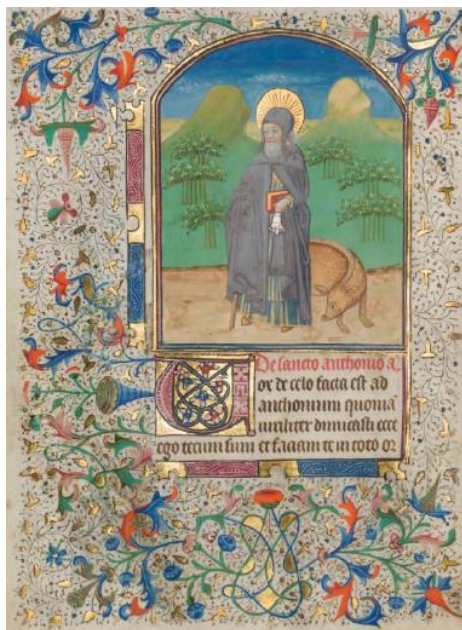 De sancto anthonio a.
Vox de celo facta est ad
anthonium quonia
uiriliter dimicasti ecce
ego tecum sum et faciam te in toto or